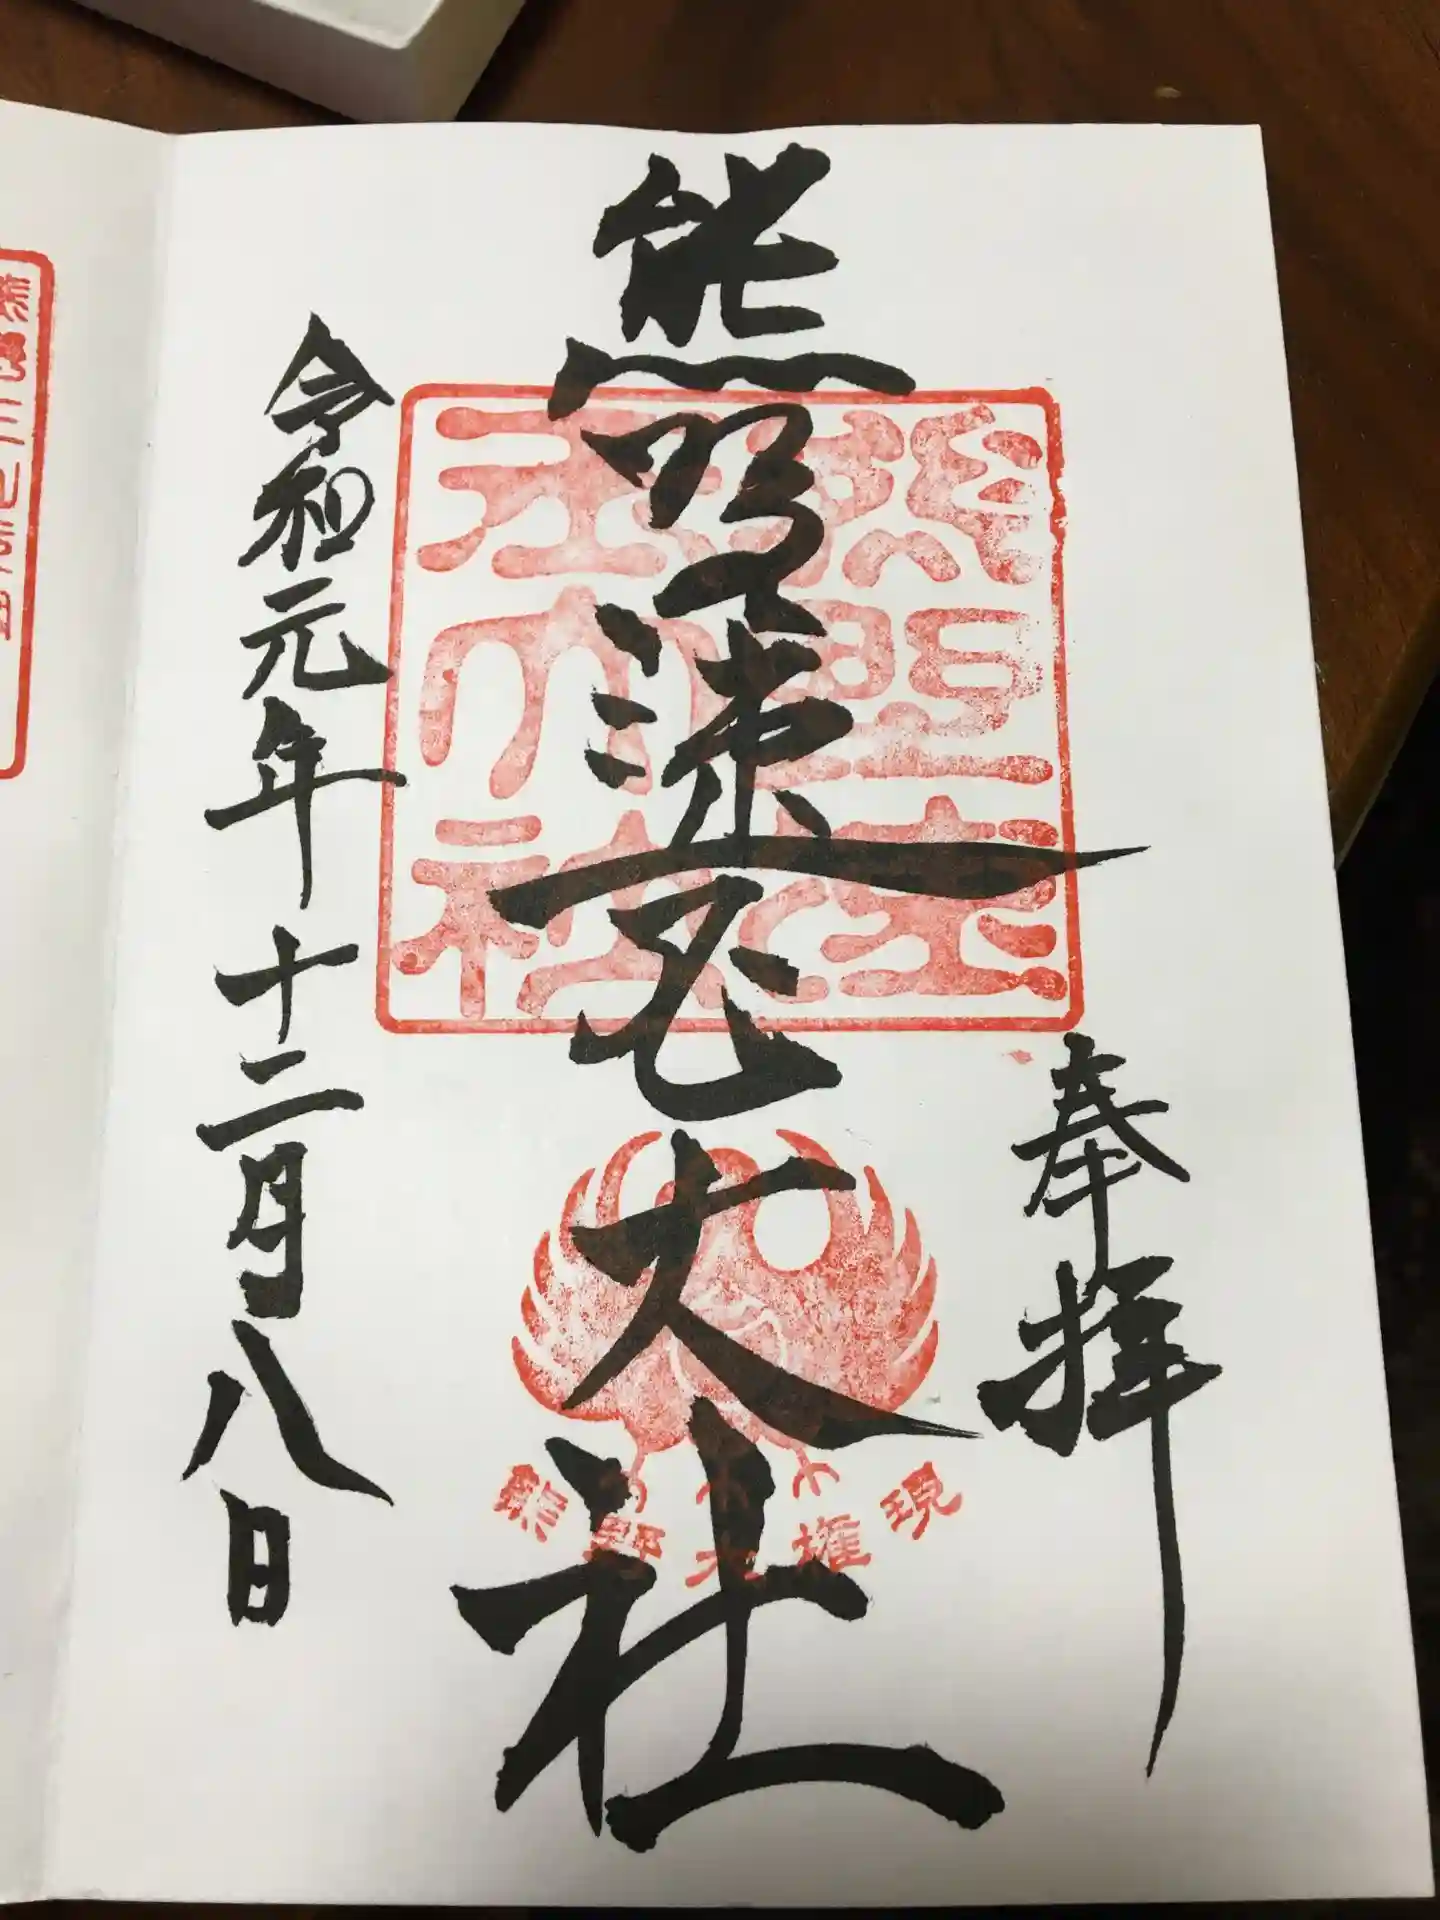 奉拝
熊野速玉大社
令和元年十二月八日
熊野速玉大社
熊野大権現